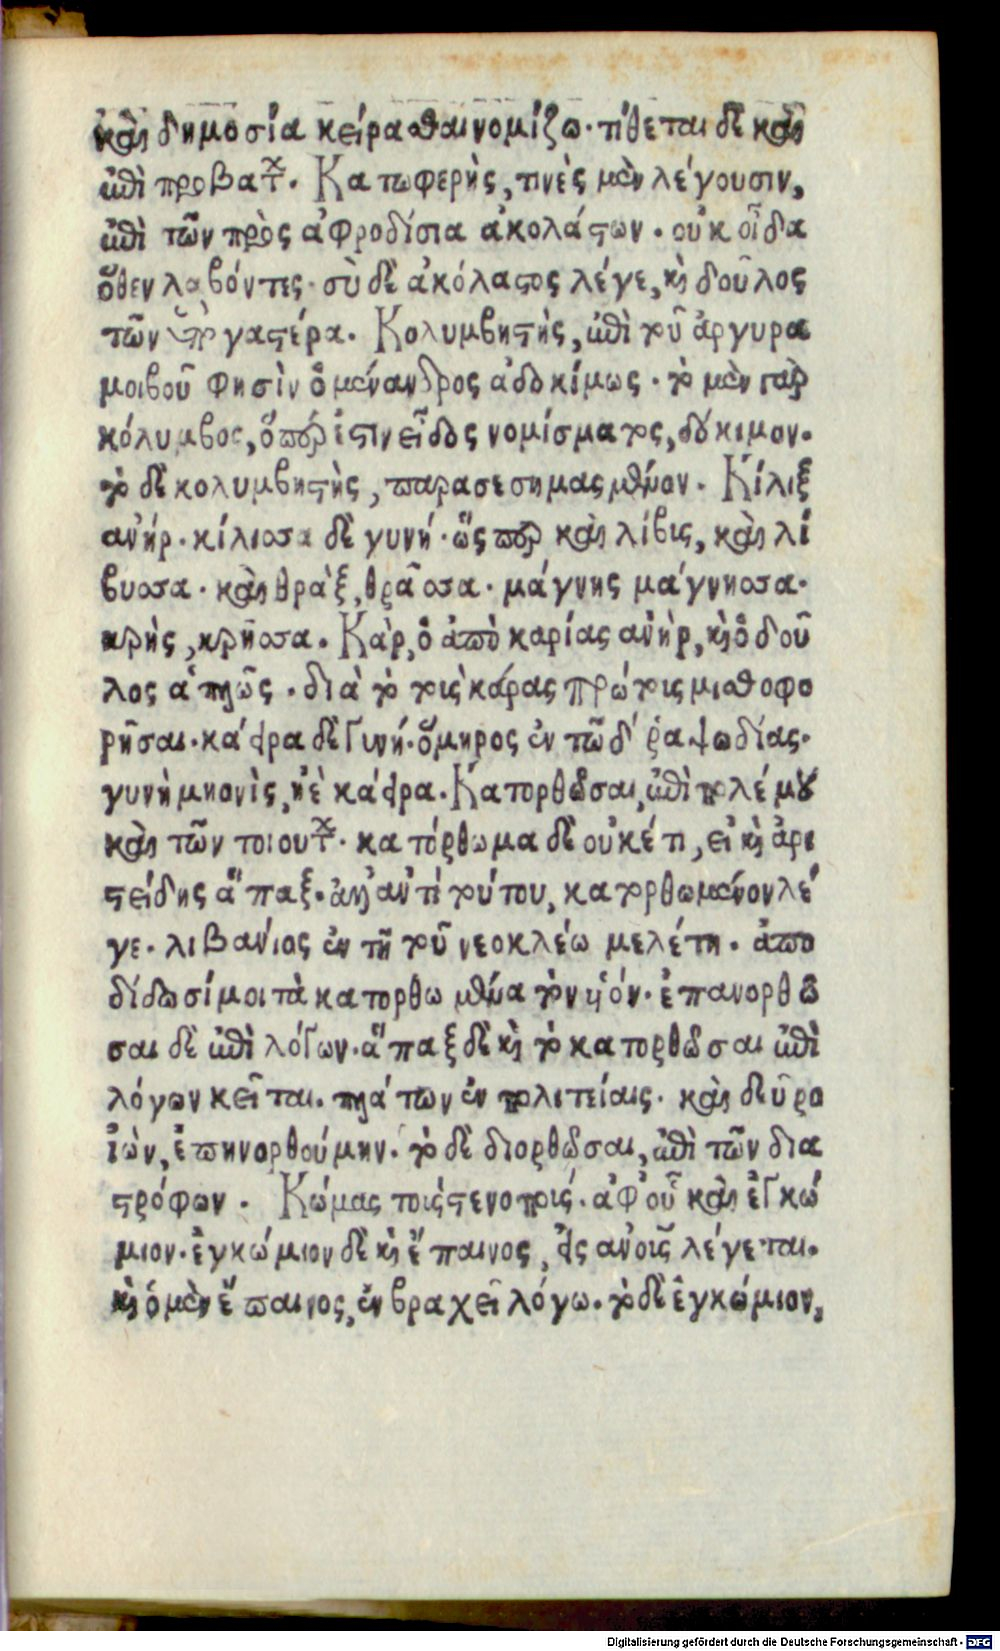 καὶ δημοσία κείρασθαι νομίζω· τίθεται δὲ καὶ
ἐπὶ προβάτων. Κατωφερὴς, τινὲς μὲν λέγουσιν,
ἐπὶ τῶν πρὸς ἀφροδίσια ἀκολάστων. οὐκ οἶδα
ὅθεν λαβόντες· σὺ δὲ ἀκόλαστος λέγε, καὶ δοῦλος
τῶν ὑπὸ γαστέρα. Κολυμβητής, ἐπὶ τοῦ ἀργυρα
μοιβοῦ φησὶν ὁ μένανδρος ἀδοκίμως. τὸ μὲν γὰρ
κόλυμβος, ὅπερ ἐστὶν εἶδος νομίσματος, δόκιμον.
τὸ δὲ κολυμβητὴς, παρασεσημασμένον. Κίλιξ
ανήρ. κίλισσα δὲ γυνή. ὥσπερ καὶ λίβις, καὶ λί
βυσσα. καὶ θρὰξ, θρᾶσσα. μάγνης μάγνησσα.
κρὴς, κρῆσσα. Κὰρ, ὁ ἀπὸ καρίας ανὴρ, καὶ ὁ δοῦ
λος ἁπλῶς. διὰ τὸ τοὺς κάρας πρώτους μισθοφο
ρῆσαι. κάειρα δὲ γυνή. ὅμηρος ἐν τῶ δ ῥαψωδίας.
γυνὴ μηονὶς, ἠὲ κάειρα. Κατορθῶσαι, ἐπὶ πολέμου
καὶ τῶν τοιούτων. κατόρθωμα δὲ οὐκέτι, εἰ καὶ ἀρι
στείδης ἅπαξ. ἀλλ' αντὶ τούτου, κατορθωμένον λέ
γε. λιβανίος ἐν τῆ τοῦ νεοκλέω μελέτη. ἀπο
δίδωσί μοι τὰ κατορθωμένα τὸν υἱόν. ἐπανορθῶ
σαι δὲ ἐπὶ λόγων. ἅπαξ δὲ καὶ τὸ κατορθῶσαι ἐπὶ
λόγων κεῖται. πλάτων ἐν πολιτείαις. καὶ δεῦρο
ἰὼν, ἐπηνορθούμην. τὸ δὲ διορθῶσαι, ἐπὶ τῶν δια
στρόφων. Κώμας τοὺς στενοπούς. ἀφ' οὗ καὶ ἐγκώ
μιον. ἐγκώμιον δὲ καὶ ἔπαινος, εἰς ανους λέγεται.
καὶ ὁ μὲν ἔπαινος, ἐν βραχεῖ λόγω. τὸ δὲ ἐγκώμιον,
Digitalisierung gefördert durch die Deutsche Forschungsgemeinschaft - DFG